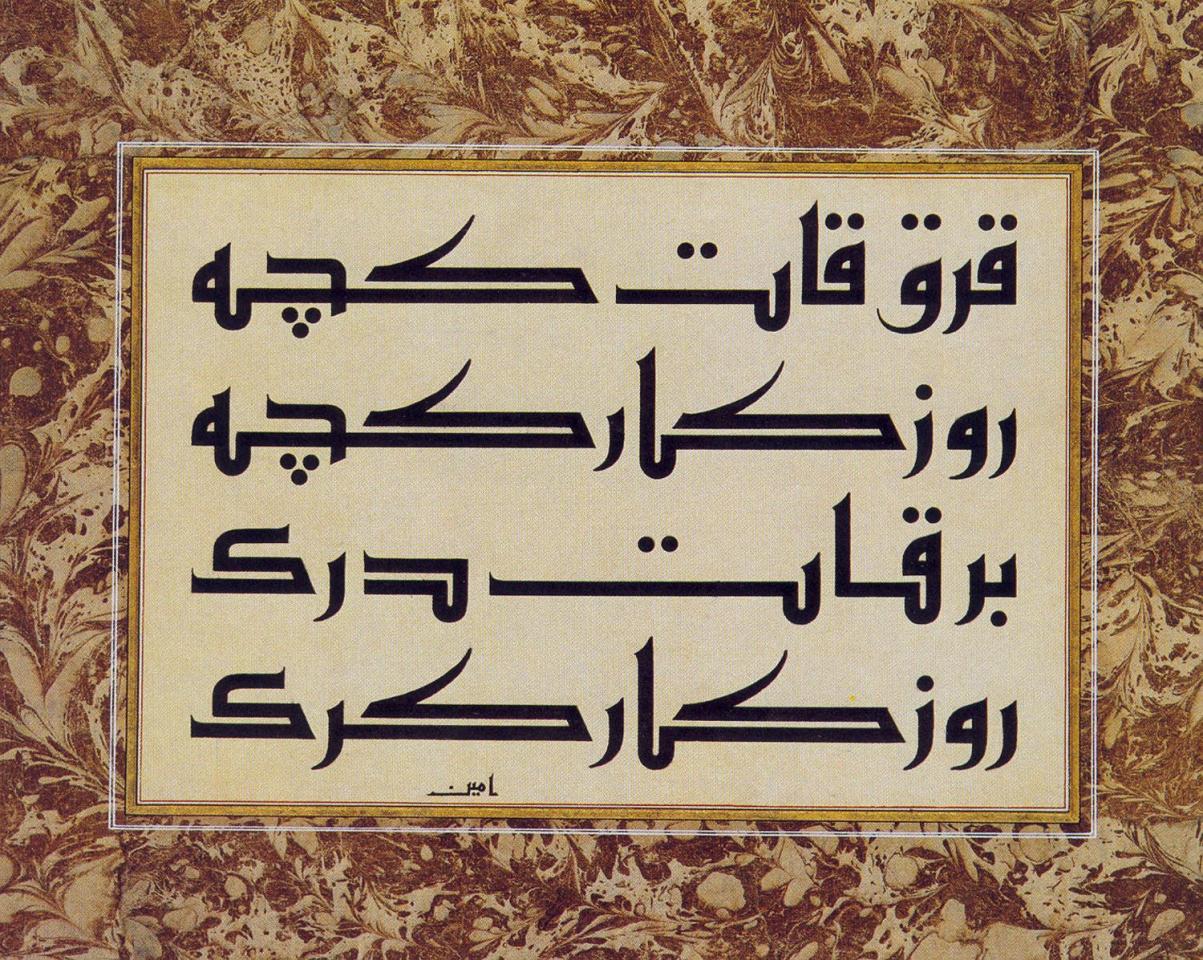 قرق قات كچه
روز كار كچه
بر قات درك
روز كار كرك
امين